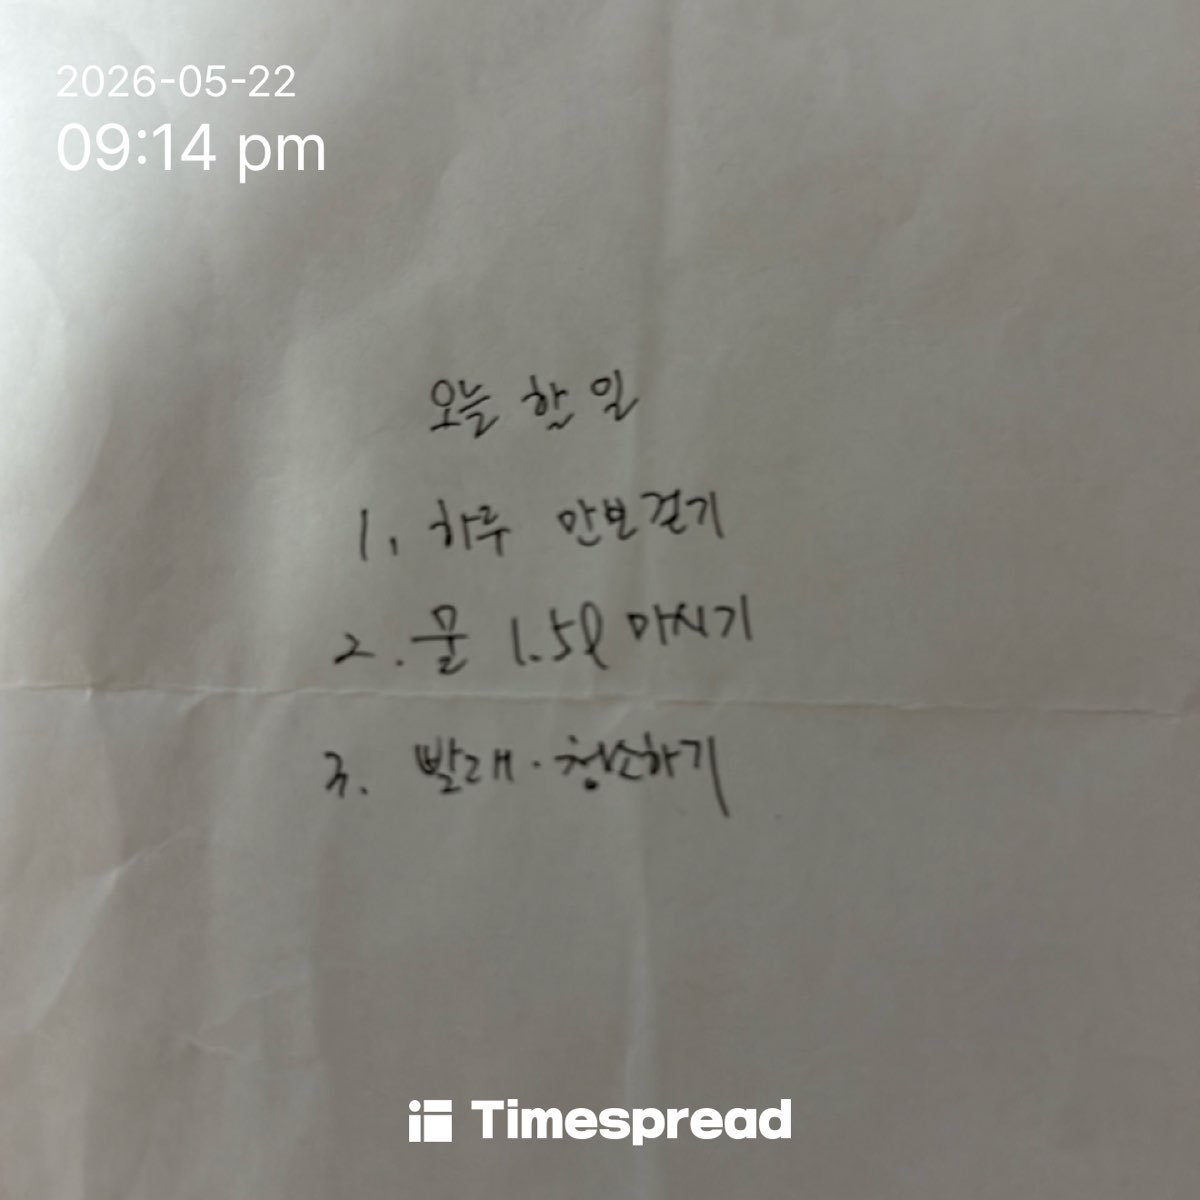 2026-05-22
09:14 pm
오늘 한 일
1. 하루 만보걷기
2. 물 1.5l 마시기
3. 빨래·청소하기
Timespread